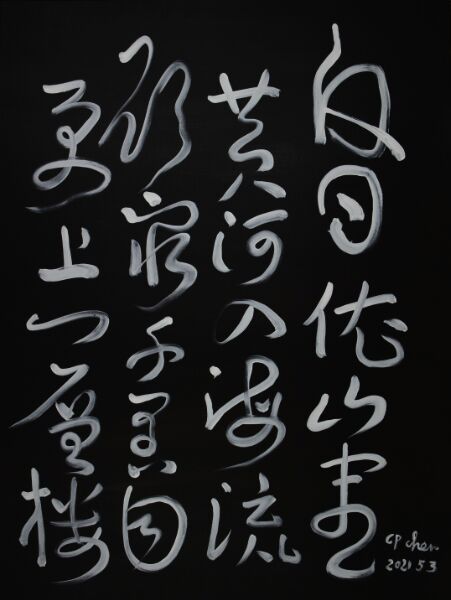 白日依山盡
黃河入海流
欲窮千里目
更上一層樓
CP Chen
2021 5 3